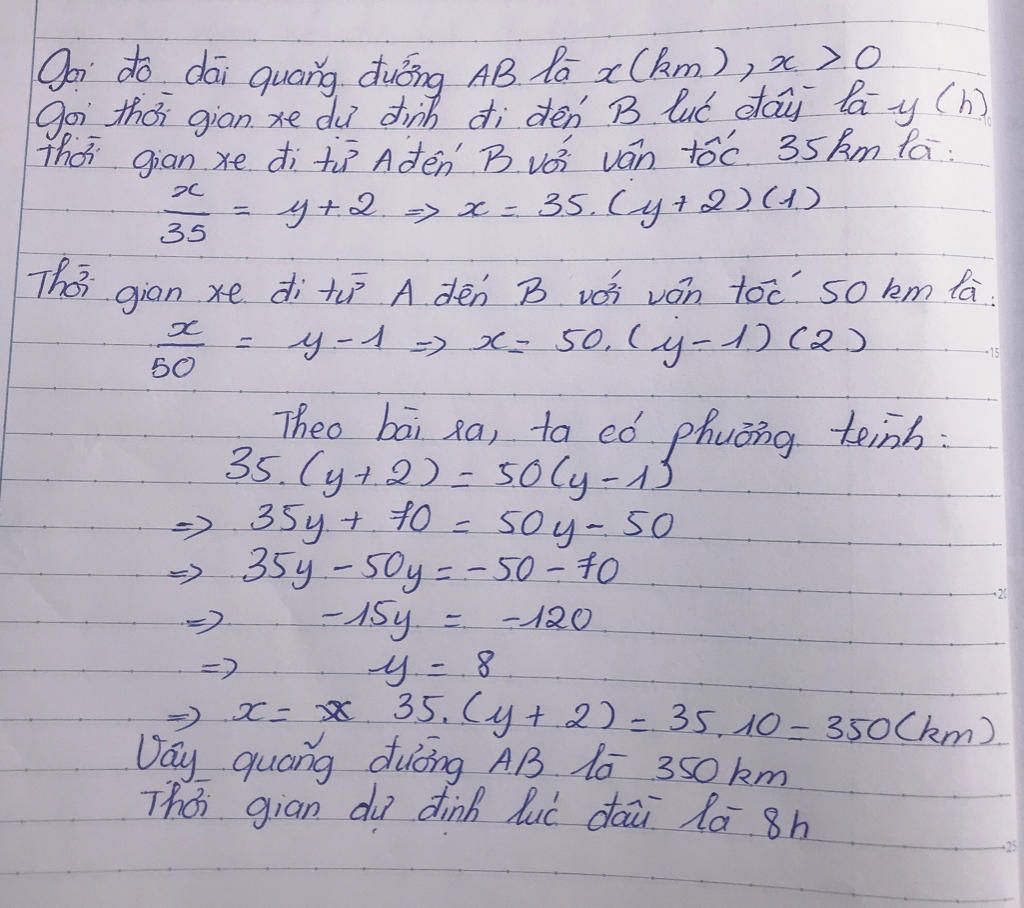 Gọi độ dài quãng đường AB là x (km), x > 0
Gọi thời gian xe dự định đi đến B lúc đầu là y (h)
Thời gian xe đi từ A đến B với vận tốc 35km là:
x/35 = y + 2 => x = 35.(y + 2) (1)
Thời gian xe đi từ A đến B với vận tốc 50 km là:
x/50 = y - 1 => x = 50.(y - 1) (2)
Theo bài ra, ta có phương trình:
35.(y + 2) = 50(y - 1)
=> 35y + 70 = 50y - 50
=> 35y - 50y = -50 - 70
=> -15y = -120
=> y = 8
=> x = 35.(y + 2) = 35.10 = 350 (km)
Vậy quãng đường AB là 350 km
Thời gian dự định lúc đầu là 8h